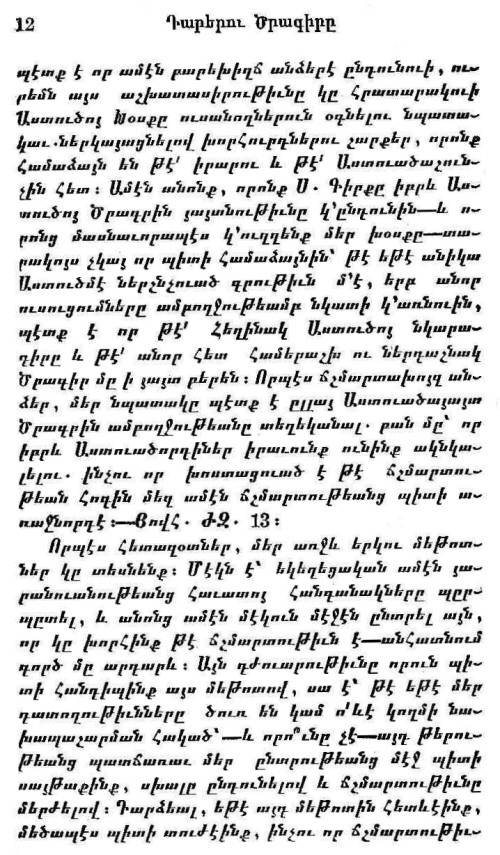 12 Դարերու Ծրագիրը
պէտք է որ ամէն բարեխիղճ անձերէ ընդունուի, ու-
րեմն այս աշխատասիրութիւնը կը հրատարակուի
Աստուծոյ Խօսքը ուսանողներուն օգնելու նպատա-
կաւ. ներկայացնելով խորհուրդներու շարքեր, որոնք
համաձայն են թէ՛ իրարու և թէ՛ Աստուածաշուն-
չին հետ։ Ամէն անոնք, որոնք Ս. Գիրքը իբրև Աս-
տուծոյ Ծրագրին յայտնութիւնը կ՚ընդունին—և ո-
րոնց մասնաւորապէս կ՚ուղղենք մեր խօսքը—տա-
րակոյս չկայ որ պիտի համաձայնին՝ թէ եթէ անիկա
Աստուծմէ ներշնչուած գրութիւն մ՚է, երբ անոր
ուսուցումները ամբողջութեամբ նկատի կ՚առնուին,
պէտք է որ թէ՛ Հեղինակ Աստուծոյ նկարա-
գիրը և թէ՛ անոր հետ համերաշխ ու ներդաշնակ
Ծրագիր մը ի յայտ բերեն։ Որպէս ճշմարտախոյզ ան-
ձեր, մեր նպատակը պէտք է ըլլայ Աստուածայայտ
Ծրագրին ամբողջութեանը տեղեկանալ. բան մը՝ որ
իբրև Աստուածորդիներ իրաւունք ունինք ակնկա-
լելու. ինչու որ խոստացուած է թէ ճշմարտու-
թեան Հոգին մեզ ամէն ճշմարտութեանց պիտի ա-
ռաջնորդէ։—Յովհ. ԺԶ. 13։
Որպէս հետազօտներ, մեր առջև երկու մեթոտ-
ներ կը տեսնենք։ Մէկն է՝ եկեղեցական ամէն յա-
րանուանութեանց հաւատոյ հանդանակները պըր-
պըտել, և անոնց ամէն մէկուն մէջէն ընտրել այն,
որ կը խորհինք թէ ճշմարտութիւն է—անհատնում
գործ մը արդարև։ Այն դժուարութիւնը որուն պի-
տի հանդիպինք այս մեթոտով, սա է՝ թէ եթէ մեր
դատողութիւնները ծուռ են կամ ո՛ևէ կողմի նա-
խապաշարման հակած՝—և որո՞ւնը չէ—այդ թերու-
թեանց պատճառաւ մեր ընտրութեանց մէջ պիտի
սայթաքինք, սխալը ընդունելով և ճշմարտութիւնը
մերժելով։ Դարձեալ, եթէ այդ մեթոտին հետևէինք,
մեծապէս պիտի տուժէինք, ինչու որ ճշմարտութիւ-